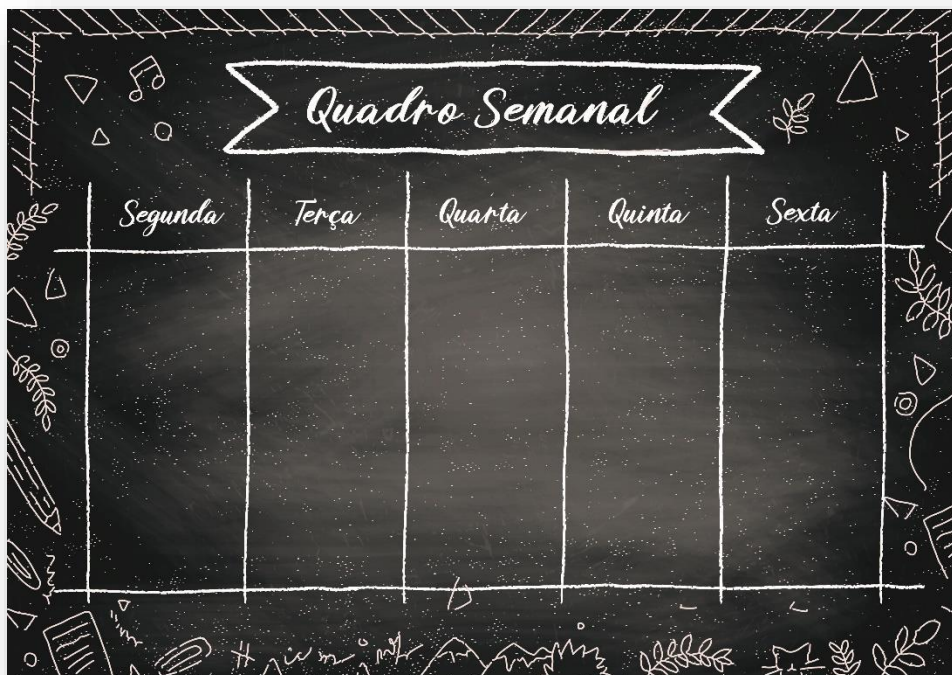 Quadro Semanal
Segunda Terça Quarta Quinta Sexta